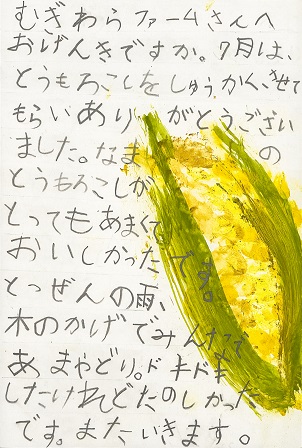 むぎわらファームさんへ
おげんきですか。7月は、
とうもろこしをしゅうかくさせて
もらいありがとうござい
ました。なまの
とうもろこしが
とってもあまくて
おいしかったです。
とつぜんの雨、
木のかげでみんなで
あまやどり。ドキドキ
したけれどたのしかった
です。またいきます。